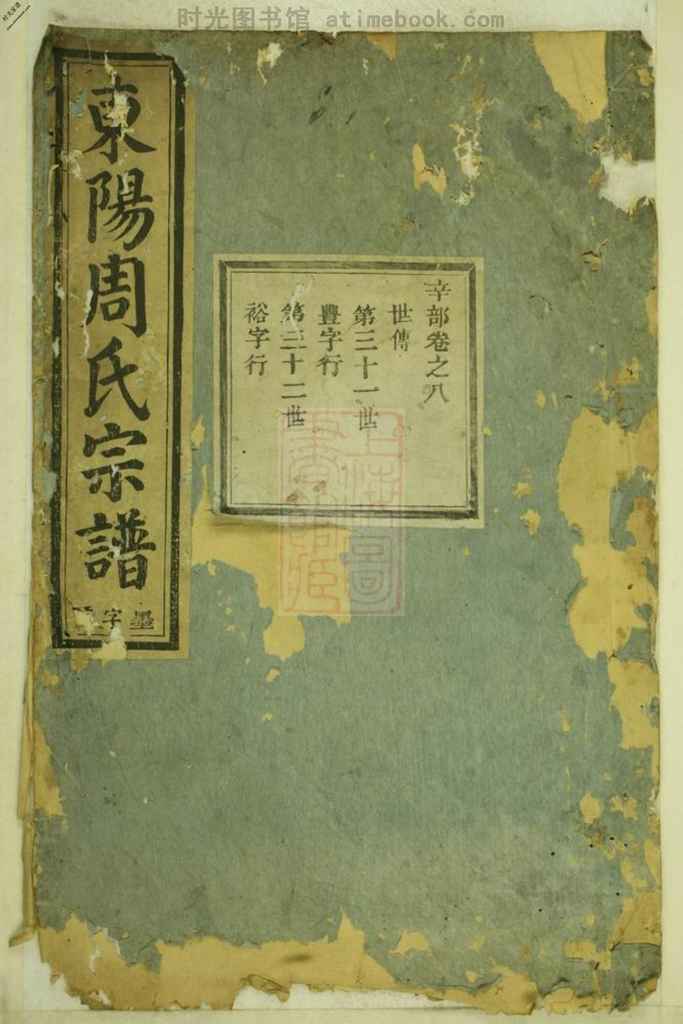 时光图书馆 atimebook.com
辛部卷之八
世傳
第三十一世
豐字行
第三十二世
裕字行
東陽周氏宗譜
字
上海圖
書館藏